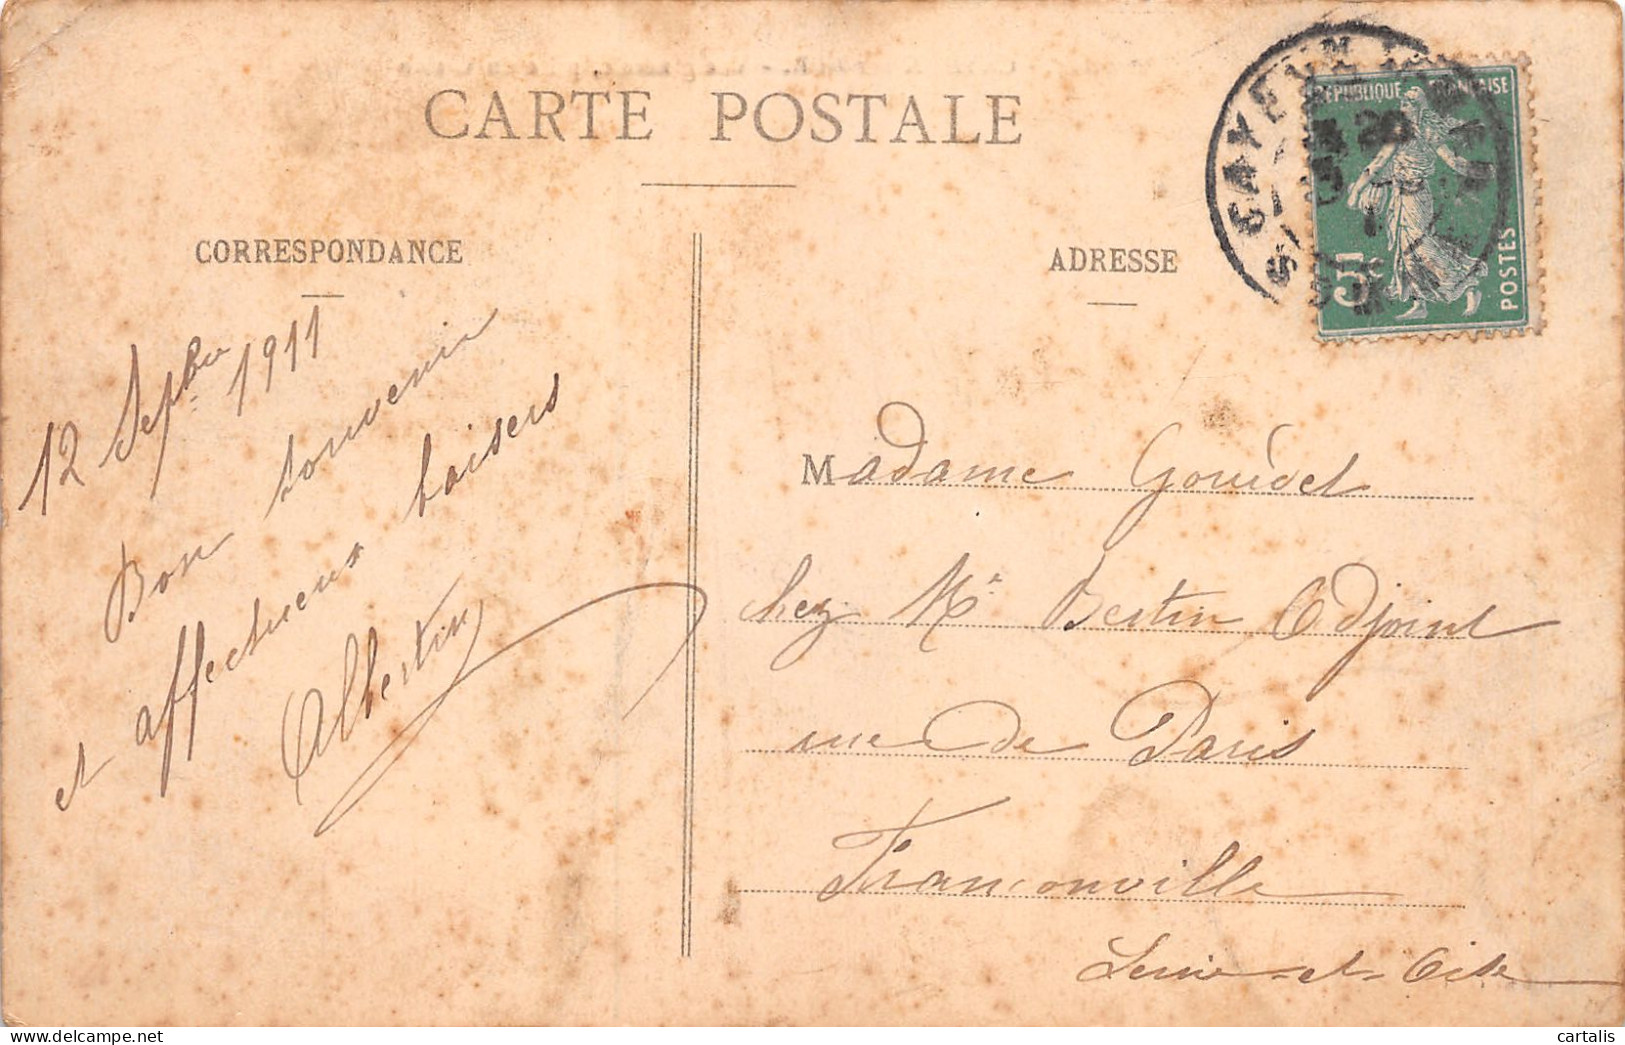 CARTE POSTALE
CORRESPONDANCE
ADRESSE
RÉPUBLIQUE FRANÇAISE
POSTES
12 Sepbre 1911
Bon souvenir
et affectueux baisers
Albertin
Madame Gouédel
chez Mr Bertin Adjoint
rue de Paris
Franconville
Seine-et-Oise
delcampe.net
cartalis